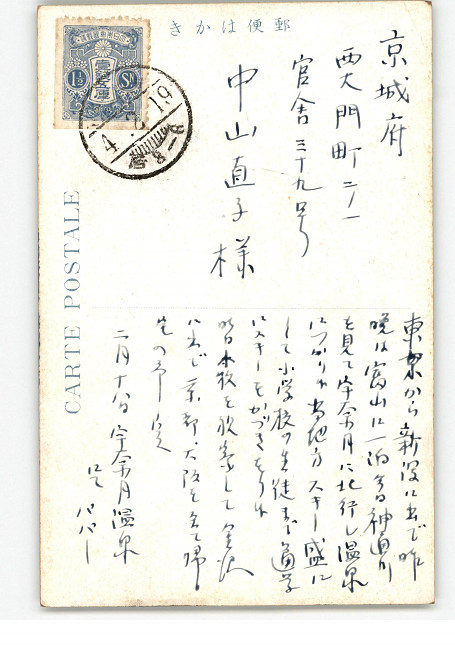 郵便はかき
京城府
西大門町二ノ一
官舎三十九号
中山直子様
CARTE POSTALE
1½ Sn
東京から新潟に出で昨
晩は富山に一泊 今日神通川
を見て宇奈月に北行し温泉
につかりぬ 当地方スキー盛に
して小学校の生徒まで通学
にスキーをかつぎをりぬ
明日本校を
に出で京都、大阪を
二月十八日 宇奈月温泉
にて
パパー